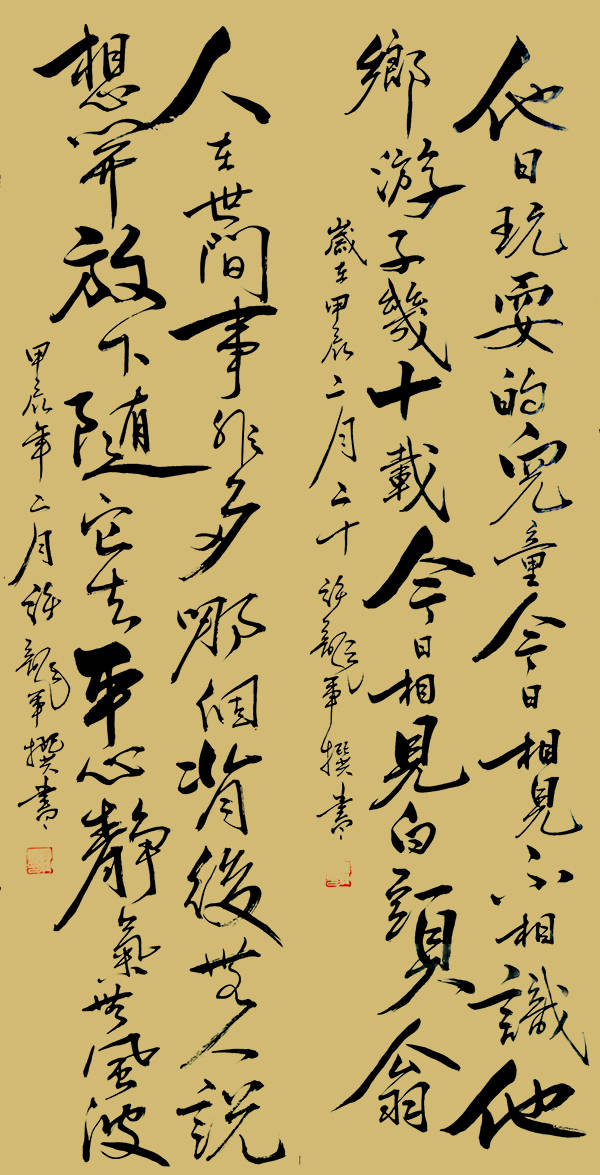 他日玩耍的兒童今日相見不相識他
鄉游子幾十載今日相見白頭翁
歲在甲辰二月二十許龍軍撰書
人在世間事非多哪個背後無人説
想開放下随它去平心靜氣無風波
甲辰年二月許龍軍撰書